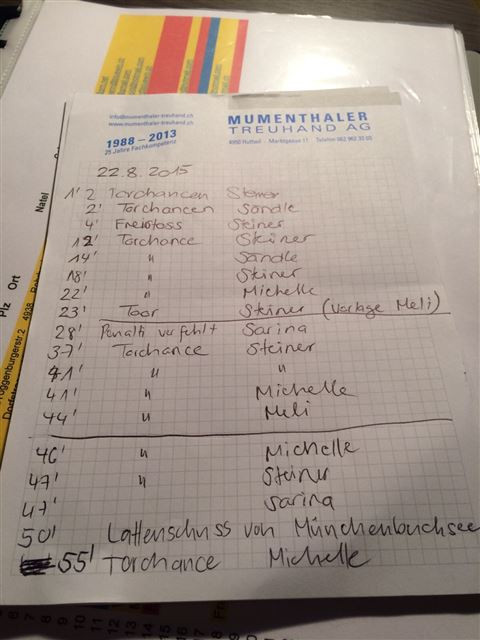 info@mumenthaler-treuhand.ch
www.mumenthaler-treuhand.ch
1988 – 2013
25 Jahre Fachkompetenz
MUMENTHALER
TREUHAND AG
4950 Huttwil Marktgasse 11 Telefon 062 962 33 03
22.8.2015
1' 2 Torchancen Steiner
2' Torchancen Sändle
4' Freistoss Steiner
12' Torchance Steiner
14' " Sändle
18' " Steiner
22' " Michelle
23' Toor Steiner (Vorlage Meli)
28' Penalti verfehlt Sarina
37' Torchance Steiner
41' " "
41' " Michelle
44' " Meli
46' " Michelle
47' " Steiner
47' Sarina
50' Lattenschuss von Münchenbuchsee
55' Torchance Michelle
Natel
Plz Ort